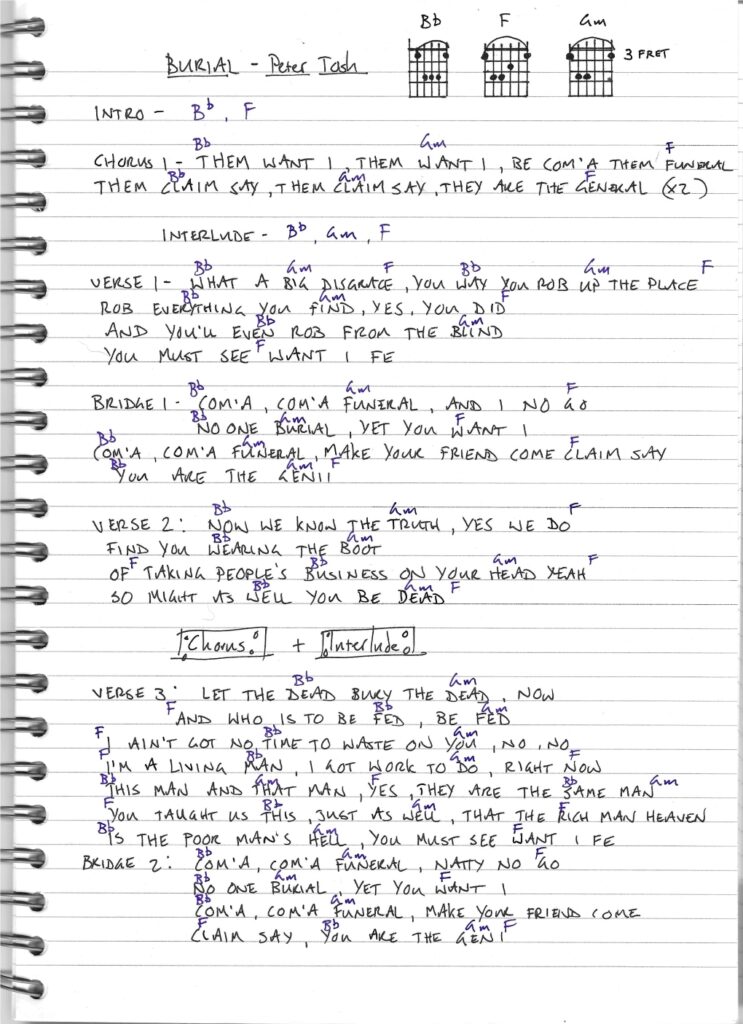 Bb F Gm
BURIAL - Peter Tosh 3 FRET
INTRO - Bb, F
Bb Gm F
CHORUS 1 - THEM WANT I, THEM WANT I, BE COM'A THEM FUNERAL
Bb Gm F
THEM CLAIM SAY, THEM CLAIM SAY, THEY ARE THE GENERAL (x2)
INTERLUDE - Bb, Gm, F
Bb Gm F Bb Gm F
VERSE 1 - WHAT A BIG DISGRACE, YOU WAY YOU ROB UP THE PLACE
Bb Gm F
ROB EVERYTHING YOU FIND, YES, YOU DID
Bb Gm
AND YOU'LL EVEN ROB FROM THE BLIND
F
YOU MUST SEE WANT I FE
Bb Gm F
BRIDGE 1 - COM'A, COM'A FUNERAL, AND I NO GO
Bb Gm F
NO ONE BURIAL, YET YOU WANT I
Bb Gm F
COM'A, COM'A FUNERAL, MAKE YOUR FRIEND COME CLAIM SAY
Bb Gm F
YOU ARE THE GENII
Bb Gm F
VERSE 2: NOW WE KNOW THE TRUTH, YES WE DO
Bb Gm
FIND YOU WEARING THE BOOT
F Bb Gm F
OF TAKING PEOPLE'S BUSINESS ON YOUR HEAD YEAH
Bb Gm F
SO MIGHT AS WELL YOU BE DEAD
Chorus + Interlude
Bb Gm
VERSE 3: LET THE DEAD BURY THE DEAD, NOW
F Bb Gm
AND WHO IS TO BE FED, BE FED
F Bb Gm
I AIN'T GOT NO TIME TO WASTE ON YOU, NO, NO
F Bb Gm F
I'M A LIVING MAN, I GOT WORK TO DO, RIGHT NOW
Bb Gm F Bb Gm
THIS MAN AND THAT MAN, YES, THEY ARE THE SAME MAN
F Bb Gm F
YOU TAUGHT US THIS, JUST AS WELL, THAT THE RICH MAN HEAVEN
Bb Gm F
IS THE POOR MAN'S HELL, YOU MUST SEE WANT I FE
Bb Gm F
BRIDGE 2: COM'A, COM'A FUNERAL, NATTY NO GO
Bb Gm F
NO ONE BURIAL, YET YOU WANT I
Bb Gm
COM'A, COM'A FUNERAL, MAKE YOUR FRIEND COME
F Bb Gm F
CLAIM SAY, YOU ARE THE GENI